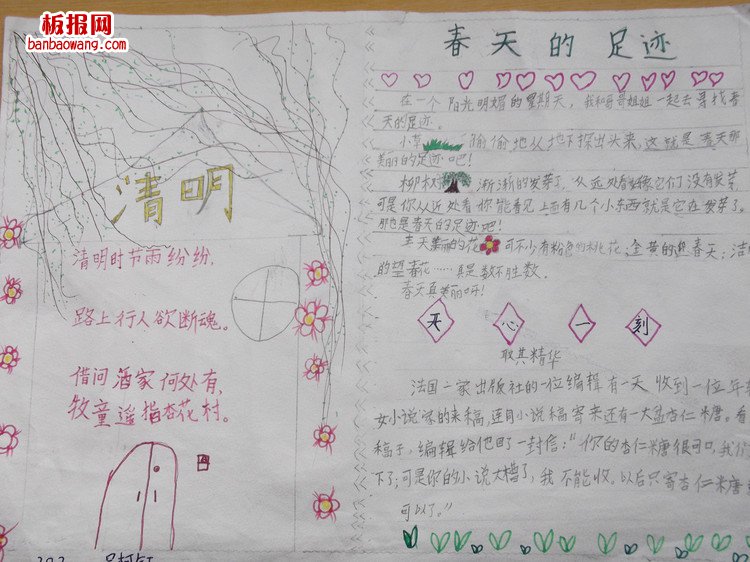 板报网
banbaowang.com
清明
清明时节雨纷纷,
路上行人欲断魂。
借问酒家何处有,
牧童遥指杏花村。
春天的足迹
在一个阳光明媚的星期天,我和哥哥姐姐一起去寻找春
天的足迹。
小草偷偷地从地下探出头来,这就是春天那
美丽的足迹吧!
柳树渐渐的发芽了,从远处看好像它们没有发芽,
可是你从近处看你能看见上面有几个小东西就是它在发芽了。
那也是春天的足迹吧!
春天美丽的花可不少有粉色的桃花,金黄的迎春天;洁
的望春花……真是数不胜数。
春天真美丽呀!
开心一刻
取其精华
法国一家出版社的一位编辑有一天收到一位年
女小说家的来稿,连同小说稿寄来还有大盒杏仁糖。看
稿子,编辑给他回了一封信:“你的杏仁糖很可口,我们
下了;可是你的小说太糟了,我不能收。以后只寄杏仁糖
可以了。”